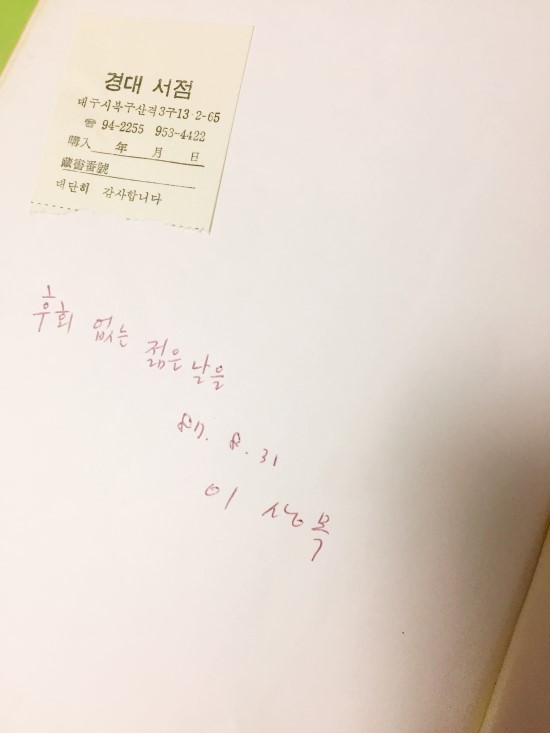 경대 서점
대구시북구산격3구13·2-65
☎ 94-2255 953-4422
購入 年 月 日
藏書番號
대단히 감사합니다
후회 없는 젊은 날을
87. 8. 31
이 상목